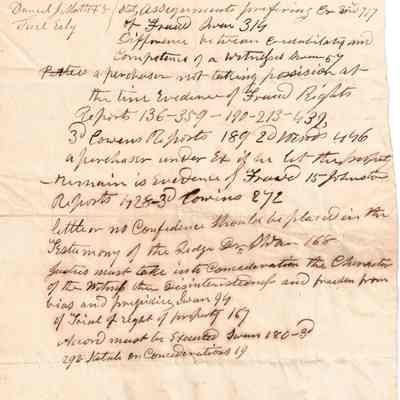 Daniel J.
of Fraud Swan 314
Difference between Credibility and
Competency of a Witness Swan 67
a purchaser not taking possision at
the time Evidence of Fraud Rights
Reports 136-359-190-213-439
3d Cowens Reports 189 2d 446
a purchaser under Ex if he let the
Remain is Evidence of Fraud 15 Johnston
Reports 428-3d Cowins 272
little or no Confidence Should be placed in the
Testimony of the Swan 166
Justices must take into Consideration the Character
of the Witness their Disinterestness and freedom from
bias and prejidice Swan 94
of Trial of right of property 167
Accord must be Executed Swan 180-3d
292 on Considerations 19